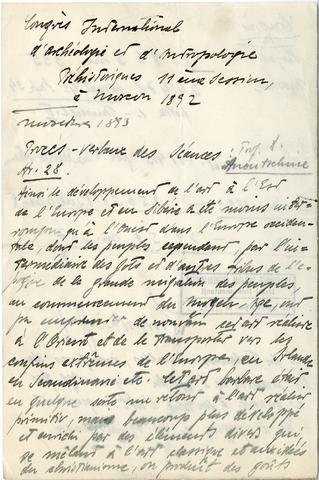 Congrès International
d'archéologie et d'Antropologie
Préhistoriques 11ème Session,
à Moscou 1892
1893
Procès-verbaux des Séances: Prof. D.
Ar. 28. Anoutchine
Ainsi le développement de l'art à l'Est
de l'Europe et en Sibérie a été moins interrompu
qu'à l'Ouest dans l'Europe occiden-
tale, dont les peuples cependant, par l'in-
termédiaire des Gots et d'autres tribus de l'é-
poque de la grande migration des peuples
au commencement du Moyen-Age, ont
pu emprunter de nouveau cet art
à l'Orient et de le transporter vers les
confins extrêmes de l'Europe, en Irlande
en Scandinavie etc. Cet art barbare était
en quelque sorte un retour à l'art
primitif, mais beaucoup plus développé
et enrichi par des éléments divers qui,
se mêlant à l'art classique et
du christianisme, on produit des goûts